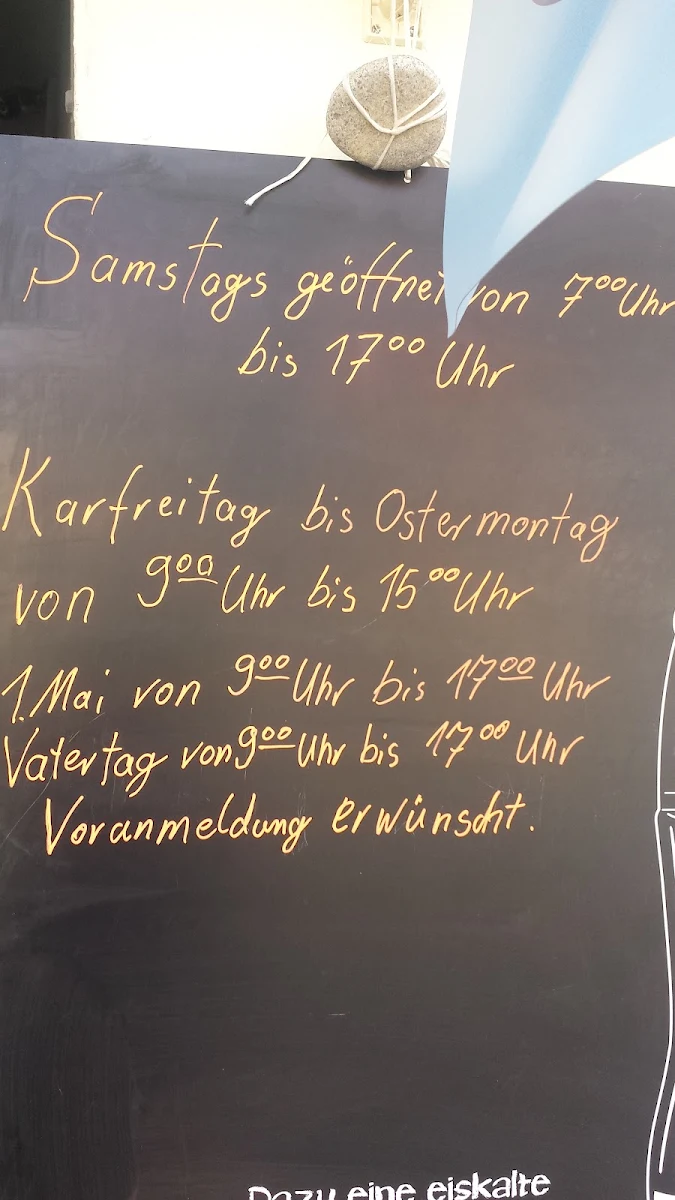 Samstags geöffnet von 7⁰⁰ Uhr
bis 17⁰⁰ Uhr
Karfreitag bis Ostermontag
von 9⁰⁰ Uhr bis 15⁰⁰ Uhr
1. Mai von 9⁰⁰ Uhr bis 17⁰⁰ Uhr
Vatertag von 9⁰⁰ Uhr bis 17⁰⁰ Uhr
Voranmeldung erwünscht.
Dazu eine eiskalte